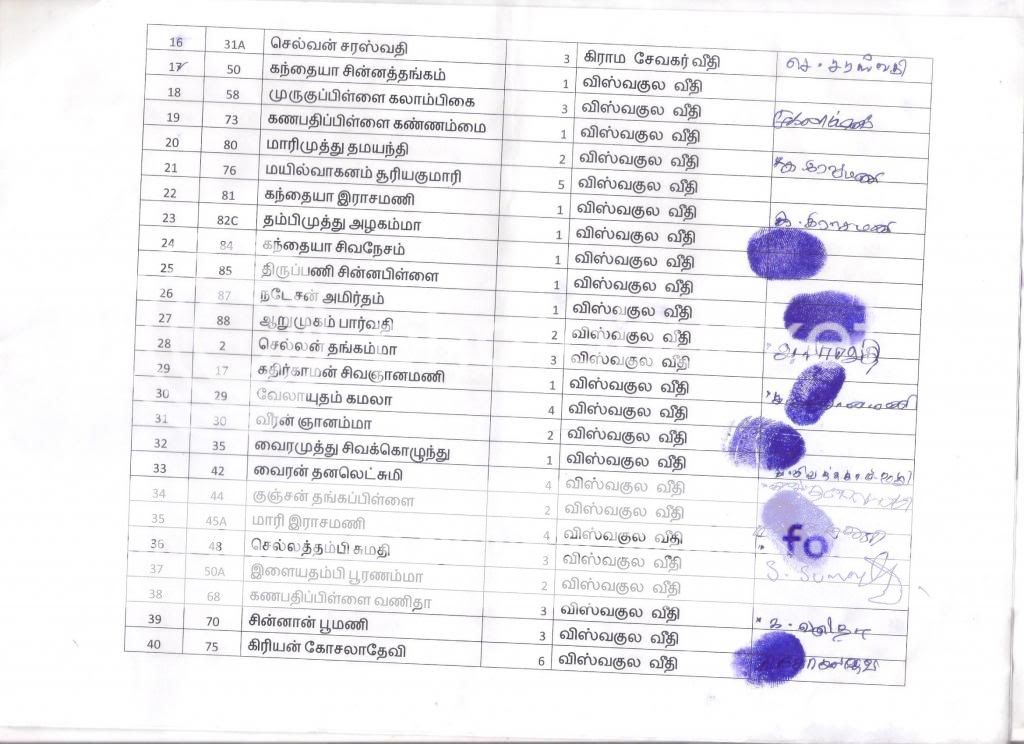 16 31A செல்வன் சரஸ்வதி 3 கிராம சேவகர் வீதி செ. சரஸ்வதி
17 50 கந்தையா சின்னத்தங்கம் 1 விஸ்வகுல வீதி
18 58 முருகுப்பிள்ளை கலாம்பிகை 3 விஸ்வகுல வீதி
19 73 கணபதிப்பிள்ளை கண்ணம்மை 1 விஸ்வகுல வீதி
20 80 மாரிமுத்து தமயந்தி 2 விஸ்வகுல வீதி
21 76 மயில்வாகனம் சூரியகுமாரி 5 விஸ்வகுல வீதி
22 81 கந்தையா இராசமணி 1 விஸ்வகுல வீதி க. இராசமணி
23 82C தம்பிமுத்து அழகம்மா 1 விஸ்வகுல வீதி
24 84 கந்தையா சிவநேசம் 1 விஸ்வகுல வீதி
25 85 திருப்பணி சின்னபிள்ளை 1 விஸ்வகுல வீதி
26 87 நடேசன் அமிர்தம் 1 விஸ்வகுல வீதி
27 88 ஆறுமுகம் பார்வதி 2 விஸ்வகுல வீதி
28 2 செல்லன் தங்கம்மா 3 விஸ்வகுல வீதி
29 17 கதிர்காமன் சிவஞானமணி 1 விஸ்வகுல வீதி
30 29 வேலாயுதம் கமலா 4 விஸ்வகுல வீதி
31 30 வீரன் ஞானம்மா 2 விஸ்வகுல வீதி
32 35 வைரமுத்து சிவக்கொழுந்து 1 விஸ்வகுல வீதி
33 42 வைரன் தனலெட்சுமி 4 விஸ்வகுல வீதி
34 44 குஞ்சன் தங்கப்பிள்ளை 2 விஸ்வகுல வீதி
35 45A மாரி இராசமணி 4 விஸ்வகுல வீதி
36 48 செல்லத்தம்பி சுமதி 3 விஸ்வகுல வீதி
37 50A இளையதம்பி பூரணம்மா 2 விஸ்வகுல வீதி
38 68 கணபதிப்பிள்ளை வனிதா 3 விஸ்வகுல வீதி க. வனிதா
39 70 சின்னான் பூமணி 3 விஸ்வகுல வீதி
40 75 கிரியன் கோசலாதேவி 6 விஸ்வகுல வீதி
fo